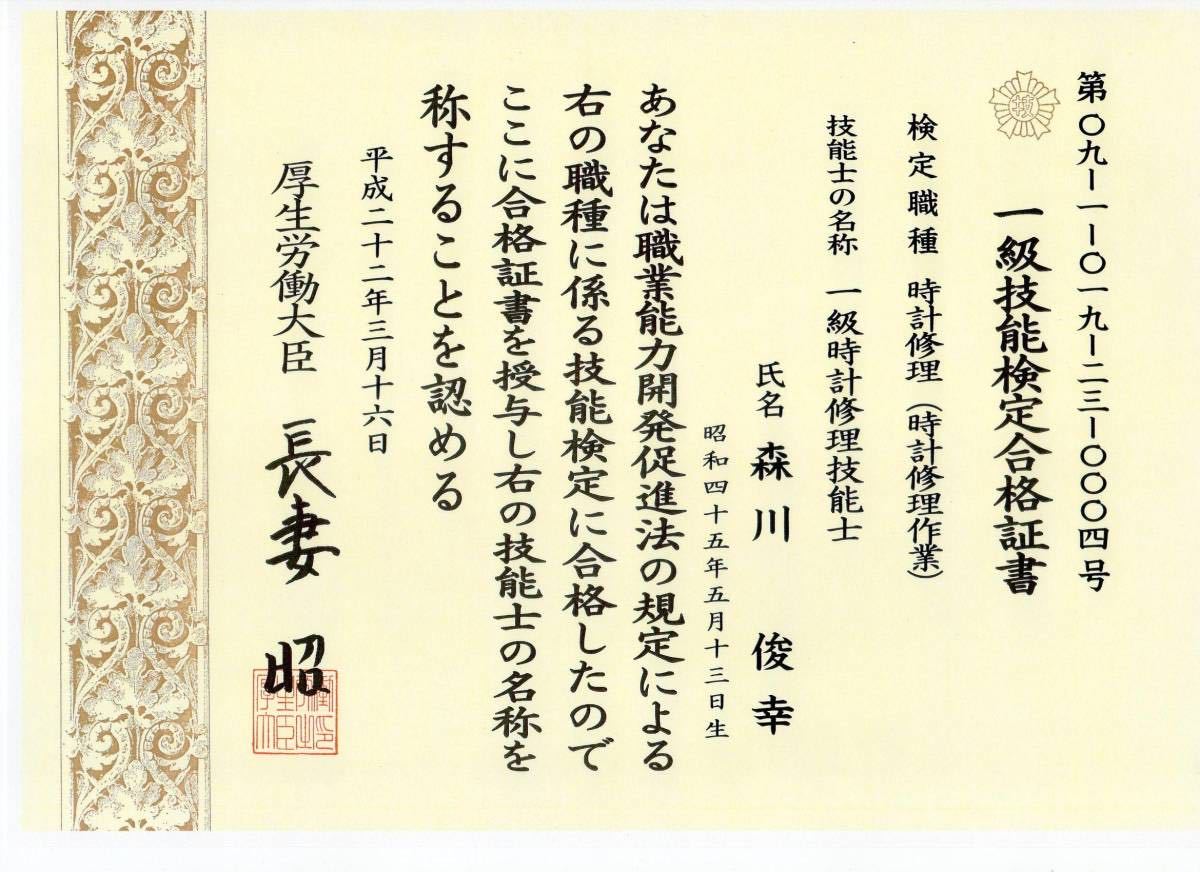 第〇九ー一ー〇一九ー二三ー〇〇〇四号
技
一級技能検定合格証書
検定職種 時計修理（時計修理作業）
技能士の名称 一級時計修理技能士
氏名 森川 俊幸
昭和四十五年五月十三日生
あなたは職業能力開発促進法の規定による
右の職種に係る技能検定に合格したので
ここに合格証書を授与し右の技能士の名称を
称することを認める
平成二十二年三月十六日
厚生労働大臣 長妻 昭